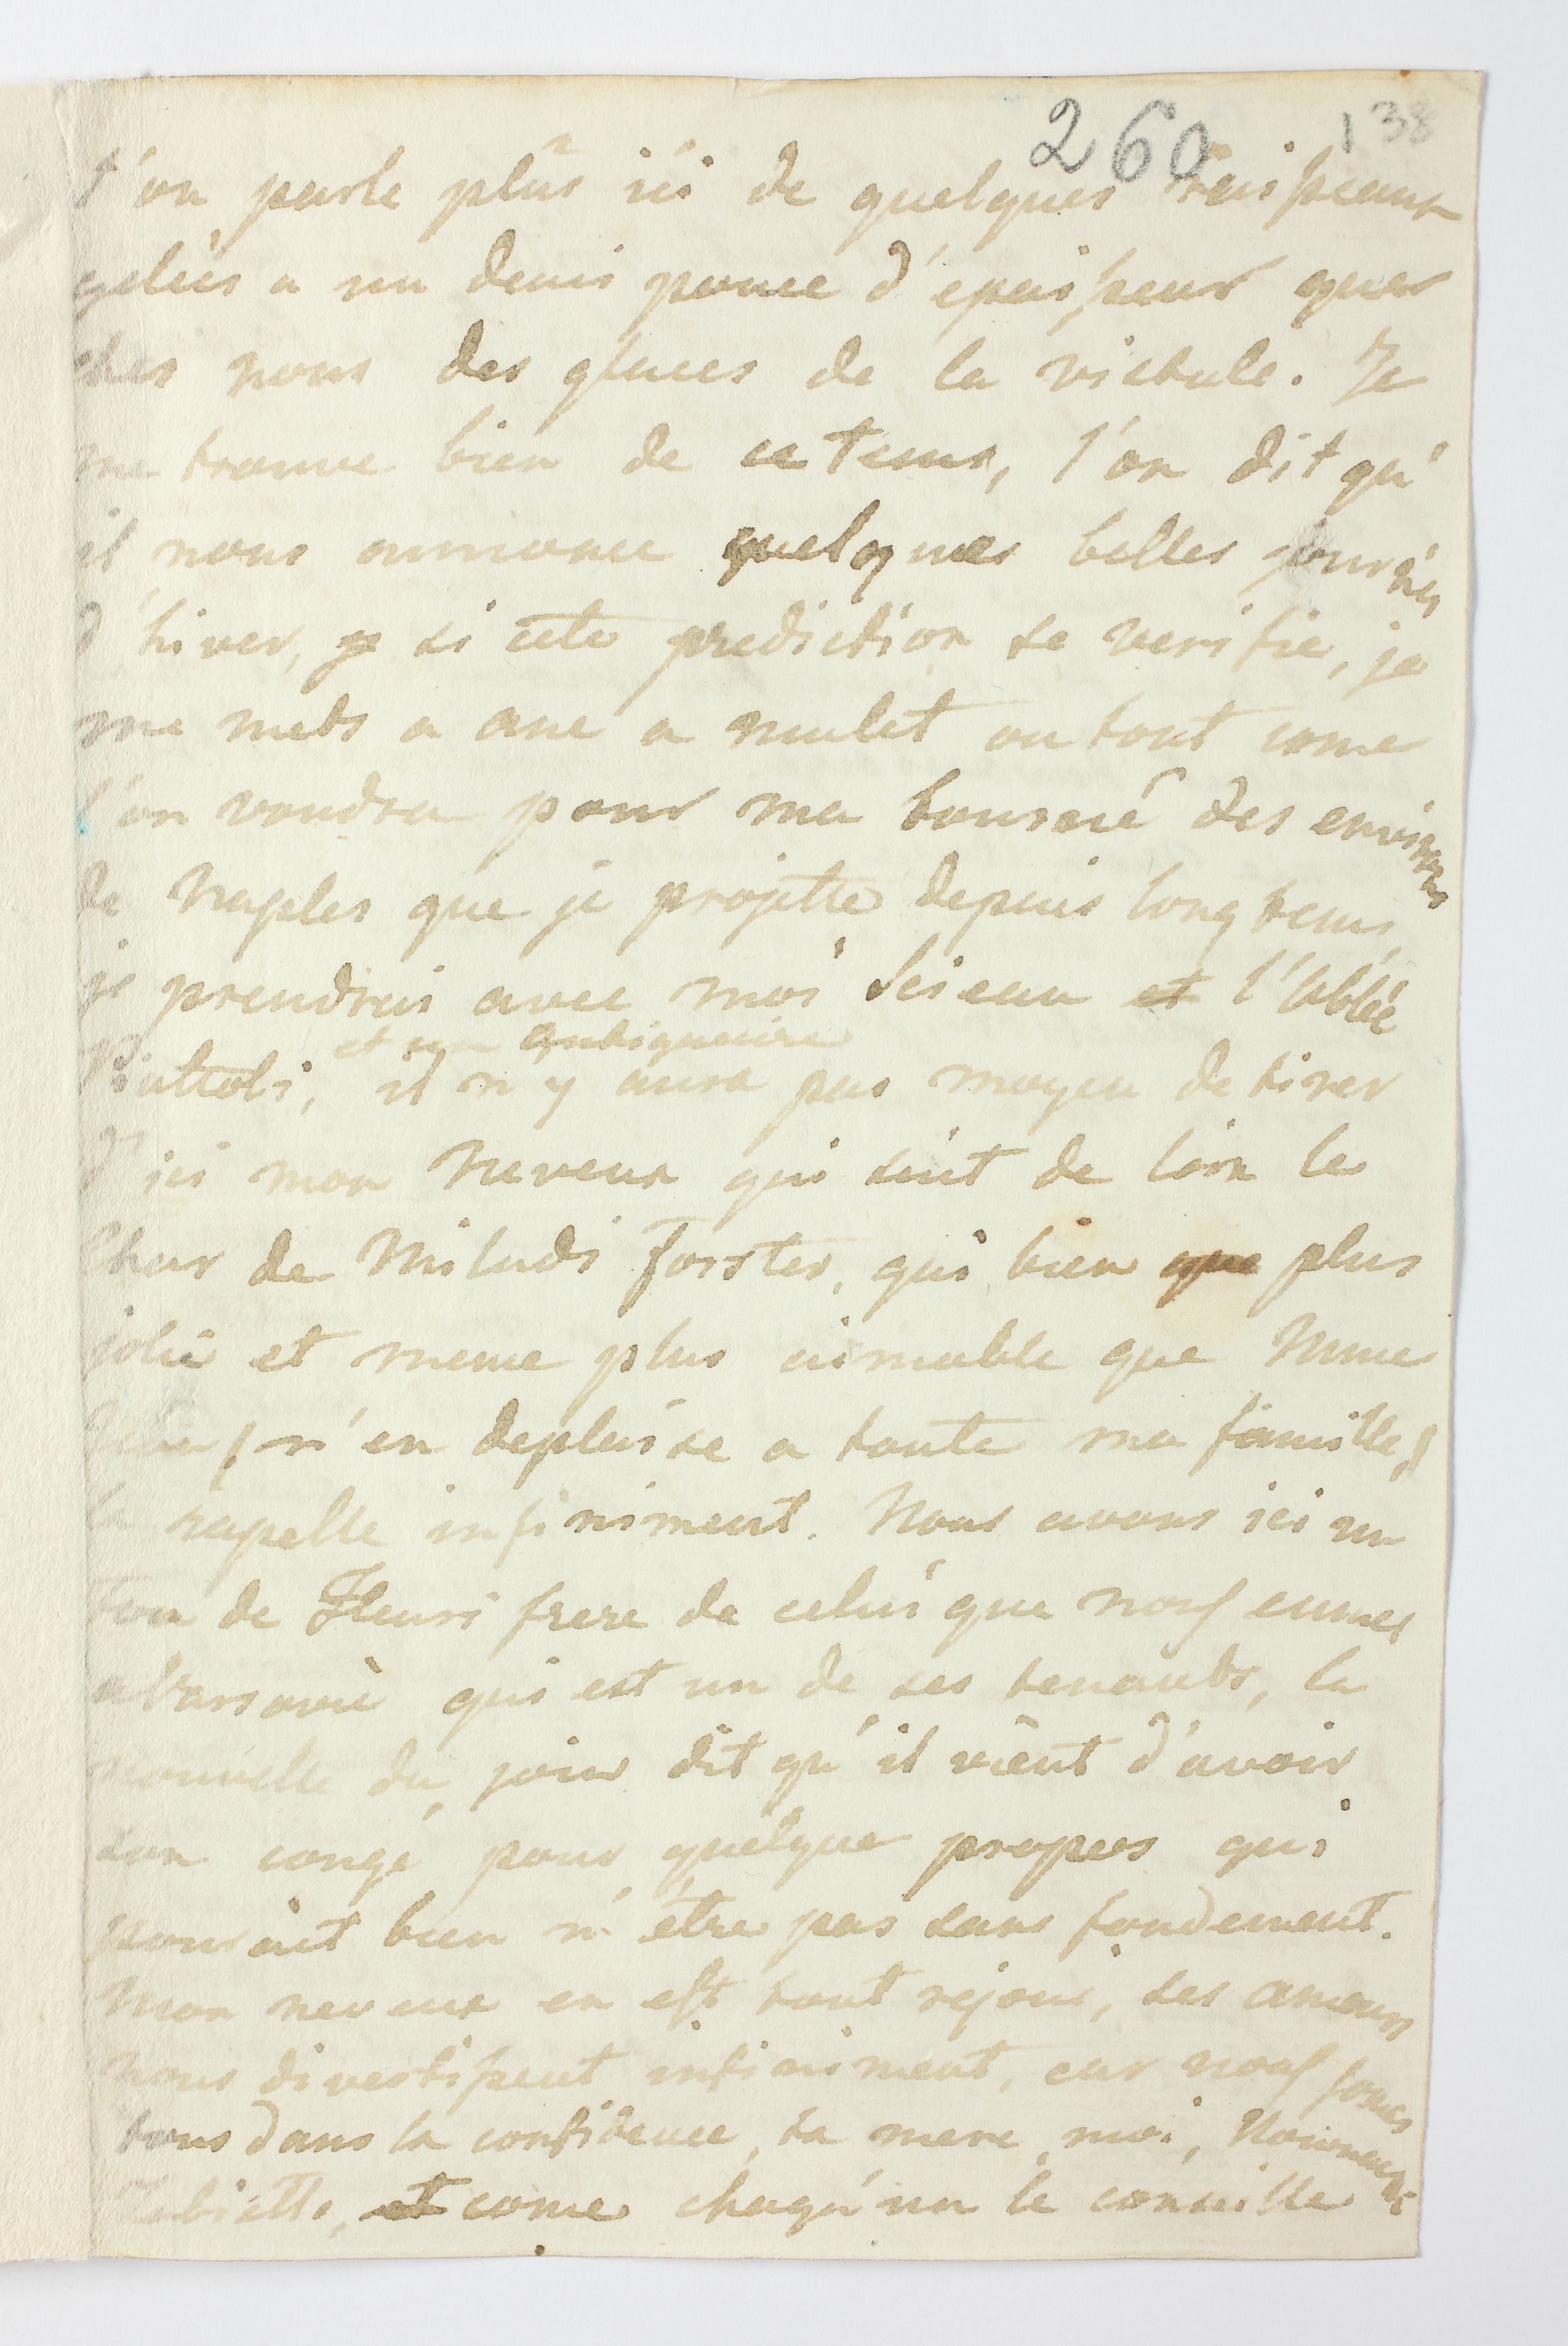 260 138
l'on parle plus ici de quelques ruisseaux
gelées a un demi pouce d'epaisseur que
ches nous des glaces de la vistule. Je
me trouve bien de ce tems, l'on dit qu'
il nous annonce quelques belles journées
d'hiver, je si cete prediction se verifie, je
me mets a ane a mulet ou tout come
l'on voudra pour ma tourneé des environs
de Naples que je projette depuis long tems,
je prendrai avec moi Loiseau et l'abbée
et un antiquaire
Piattoli, il n'y aura pas moyen de tirer
d'ici mon neveux qui suit de loin le
Char de Miladi Forster, qui bien que plus
jolie et meme plus aimable que Mme
( n'en deplaise a toute ma famille )
la rapelle infiniment. Nous avons ici un
de Fleuri frere de celui que nous eumes
a Varsovie qui est un de ses tenants, la
nouvelle du jour dit qu'il vient d'avoir
son congé pour quelque propos qui
pourait bien n'être pas sans fondement.
Mon neveux en est tout rejoui, ses amours
nous divertissent infiniment, car nous somes
tous dans la confidence, ta mere, moi,
et come chaqu'un le conseille